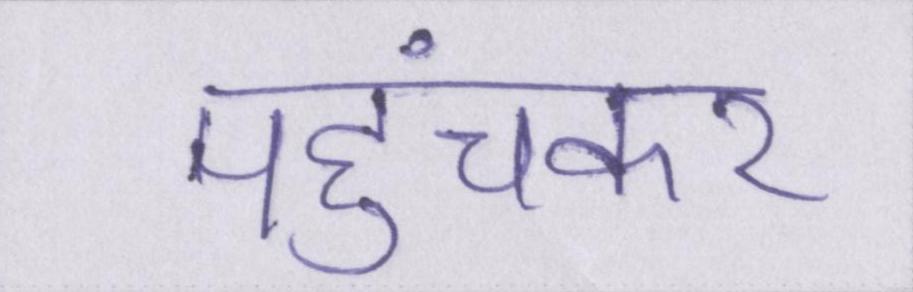 पहुंचकर